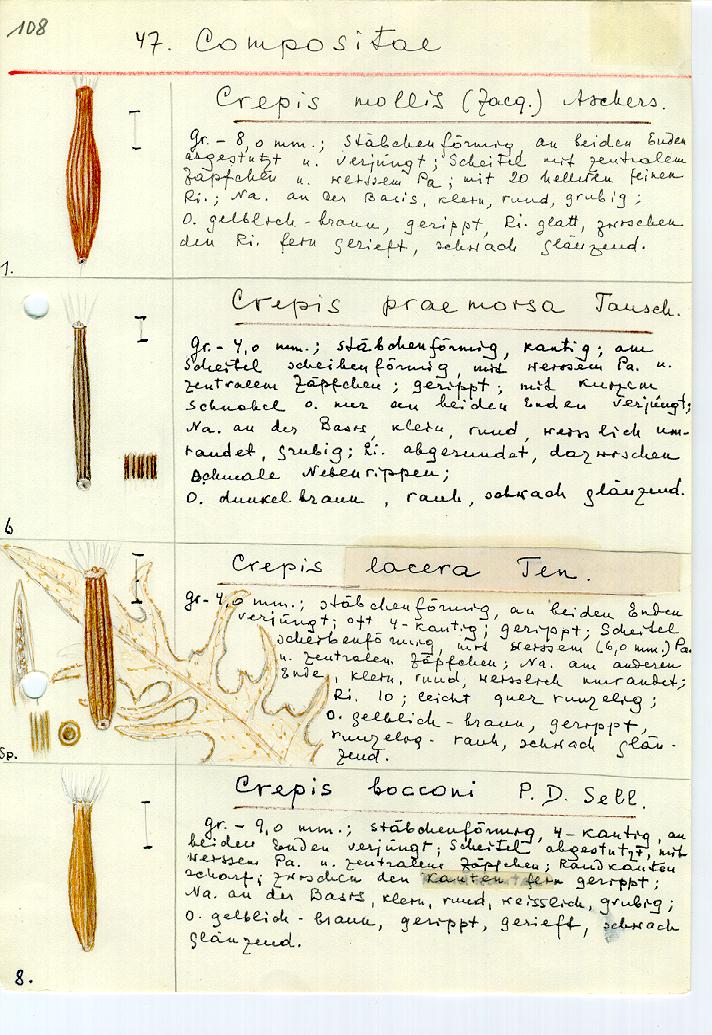 108
47. Compositae
Crepis mollis (Jacq.) Aschers.
Gr. - 8,0 mm.; stäbchenförmig, an beiden Enden
abgestutzt u. verjüngt; Scheitel mit zentralem
Zäpfchen u. weissem Pa; mit 20 hellen feinen
Ri.; Na. an der Basis, klein, rund, grubig;
O. gelblich-braun, gerippt, Ri. glatt, zwischen
den Ri. fein gerieft, schwach glänzend.
1.
Crepis praemorsa Tausch.
Gr. - 4,0 mm.; stäbchenförmig, kantig; am
Scheitel scheibenförmig, mit weissem Pa. u.
zentralem Zäpfchen; gerippt; mit kurzem
Schnabel o. nur an beiden Enden verjüngt;
Na. an der Basis, klein, rund, weisslich um-
randet, grubig; Ri. abgerundet, dazwischen
schmale Nebenrippen;
O. dunkelbraun, rauh, schwach glänzend.
6
Crepis lacera Ten.
gr- 4,0 mm.; stäbchenförmig, an beiden Enden
verjüngt; oft 4-kantig; gerippt; Scheitel
scheibenförmig, mit weissem (6,0 mm.) Pa.
u. zentralem Zäpfchen; Na. am anderen
Ende, klein, rund, weisslich umrandet;
Ri. 10; leicht quer runzelig;
O. gelblich-braun, gerippt,
runzelig-rauh, schwach glän-
zend.
Sp.
Crepis bocconi P. D. Sell.
gr. - 9,0 mm.; stäbchenförmig, 4-kantig, an
beiden Enden verjüngt; Scheitel abgestutzt, mit
weissem Pa. u. zentralem Zäpfchen; Randkanten
scharf; zwischen den Kanten fein gerippt;
Na. an der Basis, klein, rund, weisslich, grubig;
O. gelblich-braun, gerippt, gerieft, schwach
glänzend.
8.